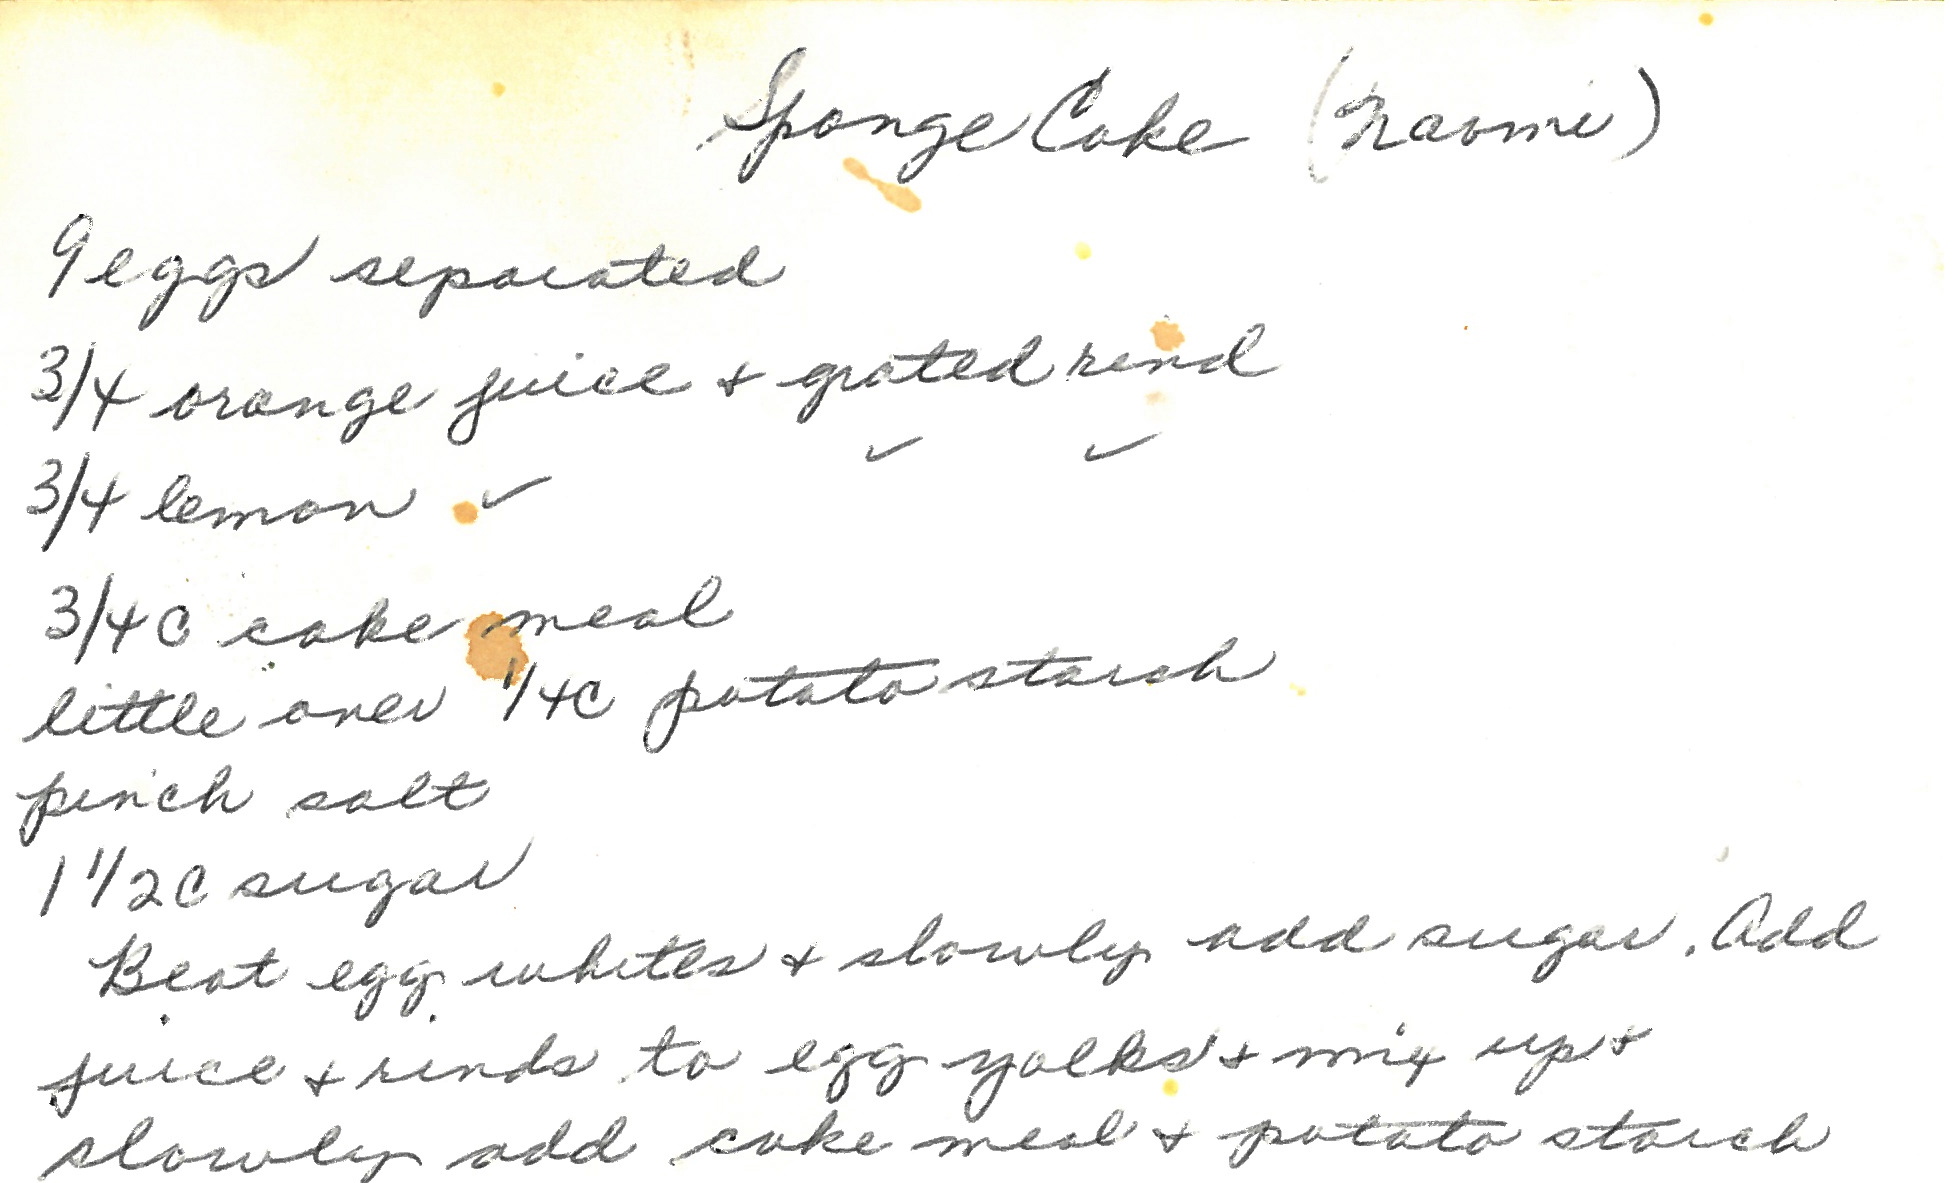 Sponge Cake (Naomi)
9 eggs separated
3/4 orange juice + grated rind
3/4 lemon ✓ ✓ ✓
3/4 c cake meal
little over 1/4 c potato starch
pinch salt
1 1/2 c sugar
Beat egg whites + slowly add sugar. Add
juice + rinds to egg yolks + mix up +
slowly add cake meal + potato starch